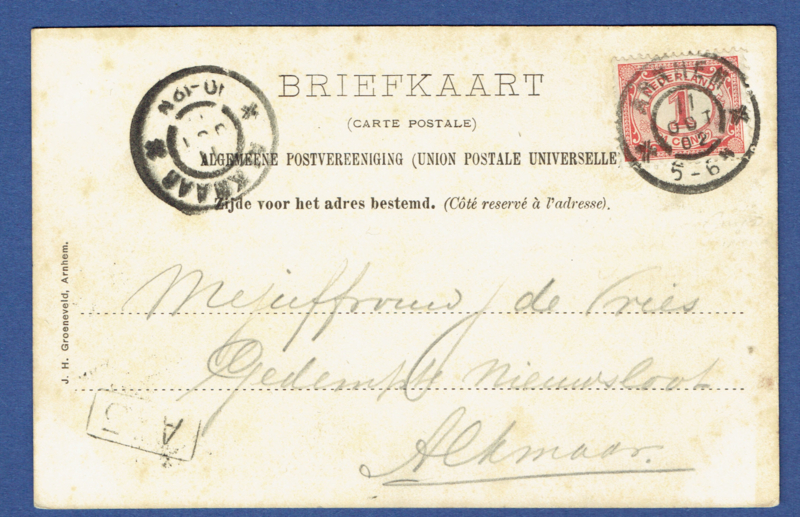 BRIEFKAART
(CARTE POSTALE)
ALGEMEENE POSTVEREENIGING (UNION POSTALE UNIVERSELLE)
Zijde voor het adres bestemd. (Côté reservé à l'adresse).
NEDERLAND
1
CENT
1
OCT
02
5-6N
10-12N
ALKMAAR
J. H. Groeneveld, Arnhem.
Mejuffrouw J de Vries
Gedempte Nieuwsloot
Alkmaar.
A